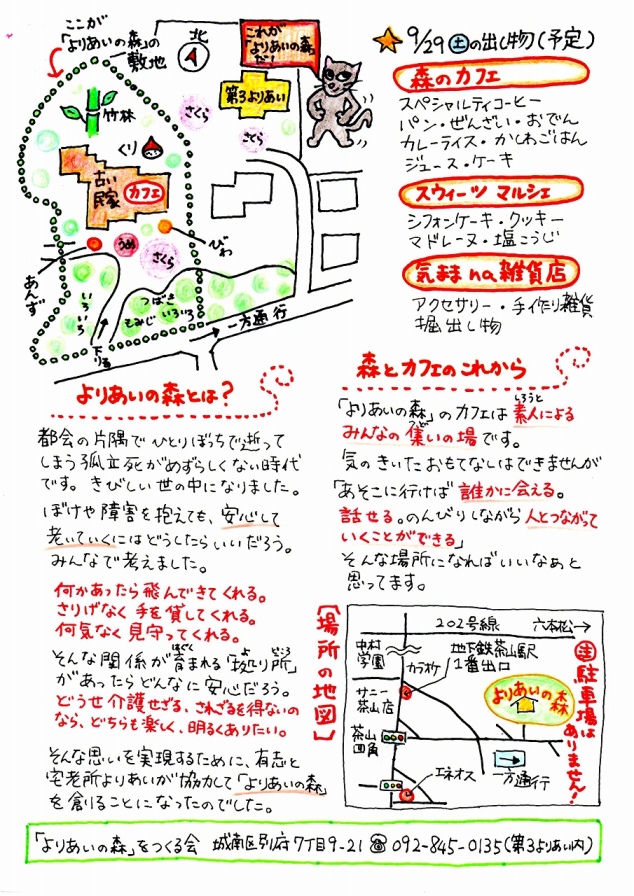 ここが
「よりあいの森」の
敷地
北
これが
「よりあいの森」
だ!
第3よりあい
竹林
さくら
さくら
くり
古い
民家
カフェ
うめ
さくら
びわ
あんず
いろいろ
つばき
もみじ いろいろ
下り道
一方通行
9/29(土)の出し物(予定)
森のカフェ
スペシャルティコーヒー
パン・ぜんざい・おでん
カレーライス・かしわごはん
ジュース・ケーキ
スウィーツ マルシェ
シフォンケーキ・クッキー
マドレーヌ・塩こうじ
気まま na 雑貨店
アクセサリー・手作り雑貨
掘出し物
よりあいの森とは?
都会の片隅でひとりぼっちで逝って
しまう孤立死がめずらしくない時代
です。きびしい世の中になりました。
ぼけや障害を抱えても、安心して
老いていくにはどうしたらいいだろう。
みんなで考えました。
何かあったら飛んできてくれる。
さりげなく手を貸してくれる。
何気なく見守ってくれる。
はぐく よ どころ
そんな関係が育まれる「拠り所」
があったらどんなに安心だろう。
どうせ介護せざる、されざるを得ないの
なら、どちらも楽しく、明るくありたい。
そんな思いを実現するために、有志と
宅老所よりあいが協力して「よりあいの森」
を創ることになったのでした。
森とカフェのこれから
しろうと
「よりあいの森」のカフェは素人による
つど
みんなの集いの場です。
気のきいたおもてなしはできませんが
「あそこに行けば誰かに会える。
話せる。のんびりしながら人とつながって
いくことができる」
そんな場所になればいいなぁと
思ってます。
【場所の地図】
202号線 六本松→
中村
学園
地下鉄茶山駅
1番出口
カラオケ
サニー
茶山店
よりあいの森
茶山
四角
一方通行
エネオス
注 駐車場は
ありません!
「よりあいの森」をつくる会 城南区別府7丁目9-21 ☎092-845-0135(第3よりあい内)